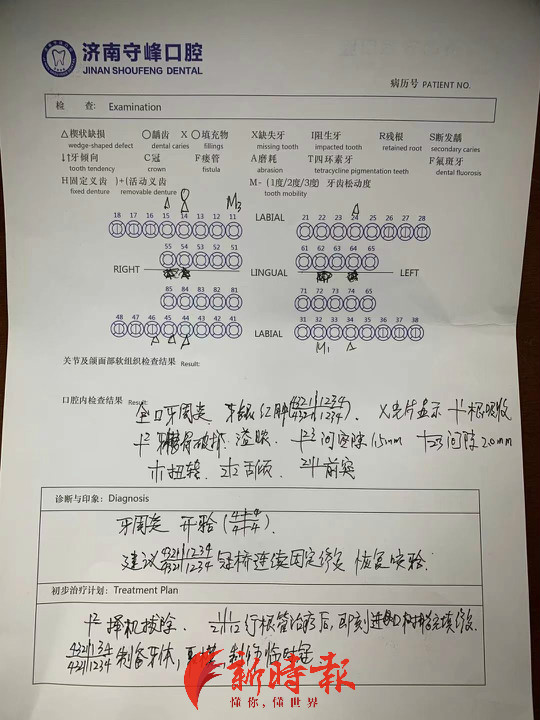 济南守峰口腔
JINAN SHOUFENG DENTAL
病历号 PATIENT NO.
检 查: Examination
△楔状缺损 〇龋齿 X 〇填充物 X缺失牙 I阻生牙 R残根 S断发龋
wedge-shaped defect dental caries fillings missing tooth impacted tooth retained root secondary caries
牙倾向 C冠 F瘘管 A磨耗 T四环素牙 F氟斑牙
tooth tendency crown fistula abrasion tetracycline pigmentation teeth dental fluorosis
H固定义齿 )+(活动义齿 M-(1度/2度/3度) 牙齿松动度
fixed denture removable denture tooth mobility
M3
18 17 16 15 14 13 12 11 LABIAL 21 22 23 24 25 26 27 28
55 54 53 52 51 61 62 63 64 65
RIGHT LINGUAL LEFT
85 84 83 82 81 71 72 73 74 65
48 47 46 45 44 43 42 41 LABIAL 31 32 33 34 35 36 37 38
M1
关节及颌面部软组织检查结果 Result:
口腔内检查结果 Result: 全口牙周炎 牙龈红肿 4321 1234 4321 1234 X光片显示 根吸收
溢脓 间隙 1.5mm 间隙 2.0mm
扭转 舌倾 前突
诊断与印象: Diagnosis
牙周炎 开𬌗
建议 4321 1234 4321 1234 冠桥连续固定修复 恢复咬𬌗
初步治疗计划: Treatment Plan
择机拔除. 行根管治疗后, 即刻
制备牙体, 临时冠
新時報
懂你,懂世界